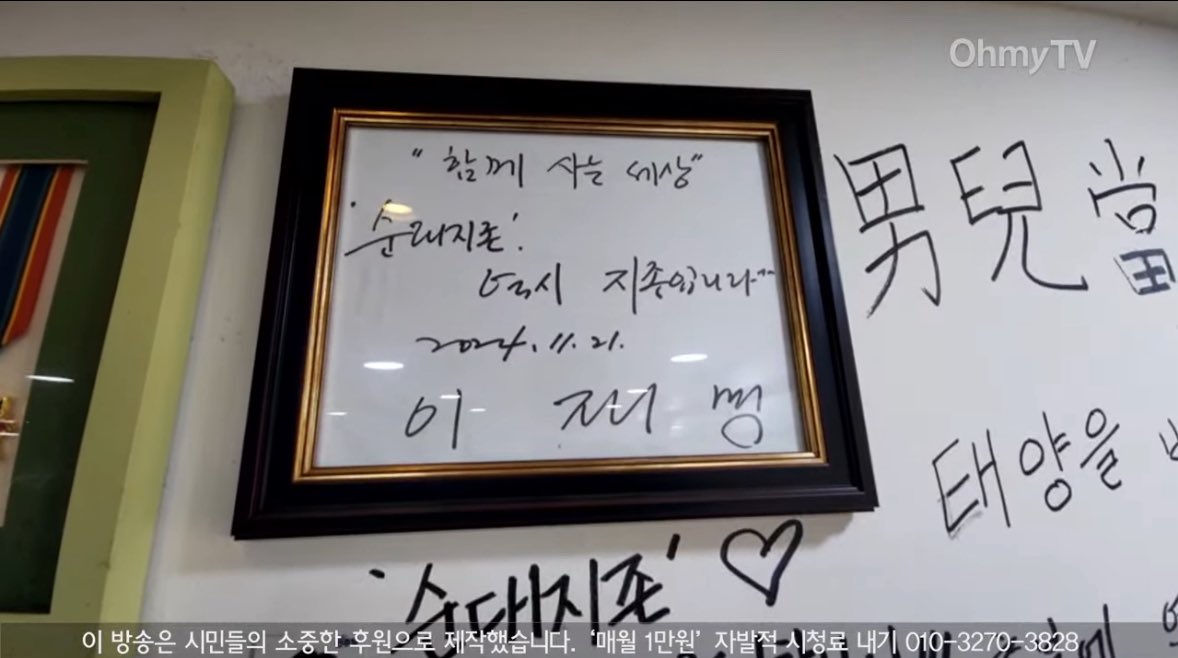 OhmyTV
"함께 사는 세상"
'순대지존'.
역시 지존입니다^^
2024. 11. 21.
이 재 명
男兒當
태양을
'순대지존' ♡
이 방송은 시민들의 소중한 후원으로 제작했습니다. ‘매월 1만원’ 자발적 시청료 내기 010-3270-3828